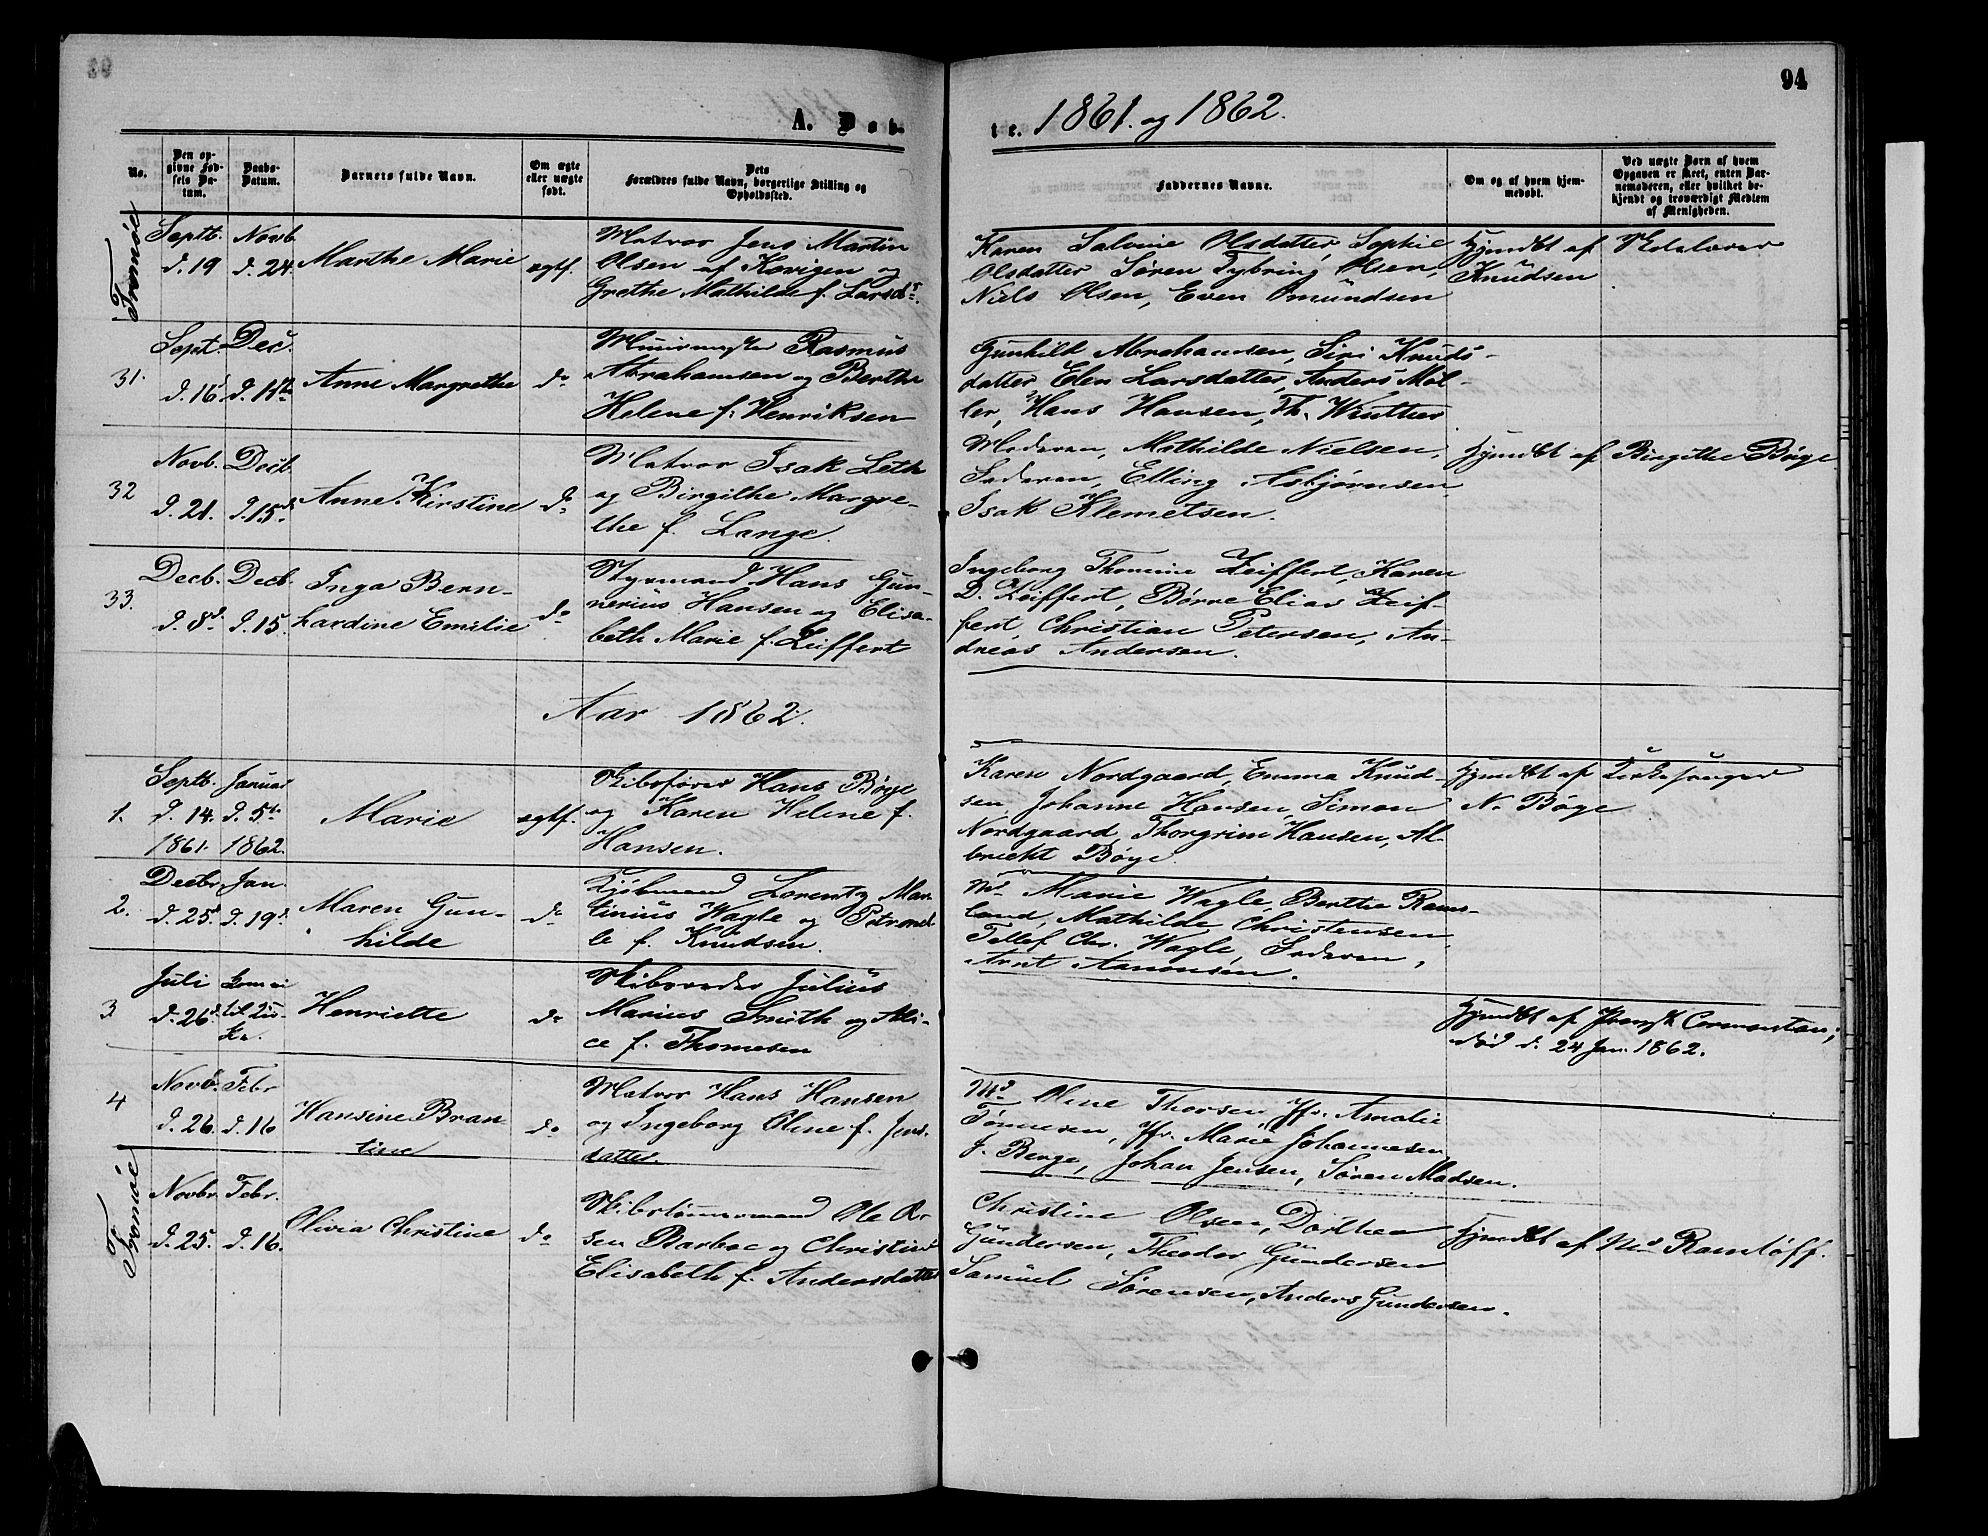 94
A. Døb-
te. 1861. og 1862.
No.
Den op-
givne Fød-
sels Da-
tum.
Daabs-
Datum.
Barnets fulde Navn.
Om ægte
eller uægte
født.
Dets
Forældres fulde Navn, borgerlige Stilling og
Opholdssted.
Faddernes Navne.
Om og af hvem hjem-
medøbt.
Ved uægte Børn af hvem
Opgaven er skeet, enten Bar-
nemoderen, eller hvilket be-
kjendt og troværdigt Medlem
af Menigheden.
Tromøe
Septb.
d. 19
Novb.
d. 24
Marthe Marie
ægtf.
Matros Jens Martin
Olsen af Kongen og
Grethe Mathilde f. Larsdr.
Karen Salvine Olsdatter, Sophie
Olsdatter Søren Tybring Olsen,
Niels Olsen, Even Omundsen
Hjmdbt af Skolelærer
Knudsen
31.
Sept.
d. 16
Dec.
d. 15de
Anne Margrethe
do
Muurmester Rasmus
Abrahamsen og Berthe
Helene f. Henriksen
Gunhild Abrahamsen, Siri Knuds-
datter Elen Larsdatter, Anders Møl-
ler, Hans Hansen, Th. Winther
32
Novb.
d. 21.
Decb.
d. 15d
Anne Kirstine
do
Matros Isak Leth
og Birgithe Margre-
the f. Lange.
Moderen, Mathilde Nielsen,
Faderen, Elling Asbjørnsen,
Isak Klemetsen.
Hjmdbt af Birgithe Bøge
33.
Decb.
d. 8d
Decb.
d. 15.
Inga Bern-
hardine Emilie
do
Styrmand Hans Gun-
nerius Hansen og Elisa-
beth Marie f. Zeiffert
Ingeborg Thomine Zeiffert, Karen
D. Zeiffert, Børre Elias Zeif-
fert, Christian Petersen, An-
dreas Andersen.
Aar 1862.
1.
Septb.
d. 14.
1861.
Januar
d. 5te
1862.
Marie
ægtf.
Skibsfører Hans Bøge
og Karen Helene f.
Hansen.
Karen Nordgaard, Emma Knud-
sen, Johanne Hansen, Simon
Nordgaard, Thorgrim Hansen, Al-
brecht Bøge.
Hjmdbt af Kirkesanger
N. Bøge
2.
Decbr.
d. 25d
Jan.
d. 19d.
Maren Gun-
hilde
do
Kjøbmand Lorentz Mar-
tinius Wagle og Petronel-
le f. Knudsen.
Md. Marie Wagle, Berthe Rams-
land, Mathilde Christensen,
Tellef Chr. Wagle, Faderen,
Arnt Aanonsen.
3
Juli
d. 26d.
Kom ei
til Kir-
ke.
Henriette
do
Skibsreder Julius
Marius Smith og Ali-
ce f. Thomesen
Hjmdbt af
død d. 24 Jan. 1862.
4
Novb.
d. 26.
Febr
d. 16
Hansine Bran-
tine
do
Matros Hans Hansen
og Ingeborg Oline f. Jens-
datter.
Md. Oline Thorsen, Jfr. Amalie
Tønnesen, Jfr. Marie Johannesen
J. Berge, Johan Jensen, Søren Madsen.
Tromøe
Novbr.
d. 25.
Febr.
d. 16.
Olivia Christine
do
Skibstømmermand Ole
sen Barboe og Christine
Elisabeth f. Andersdatter
Christine Olsen, Dorthea
Gundersen, Theodor Gundersen
Samuel Sørensen, Anders Gundersen.
Hjmdbt af Md. Ramløff.